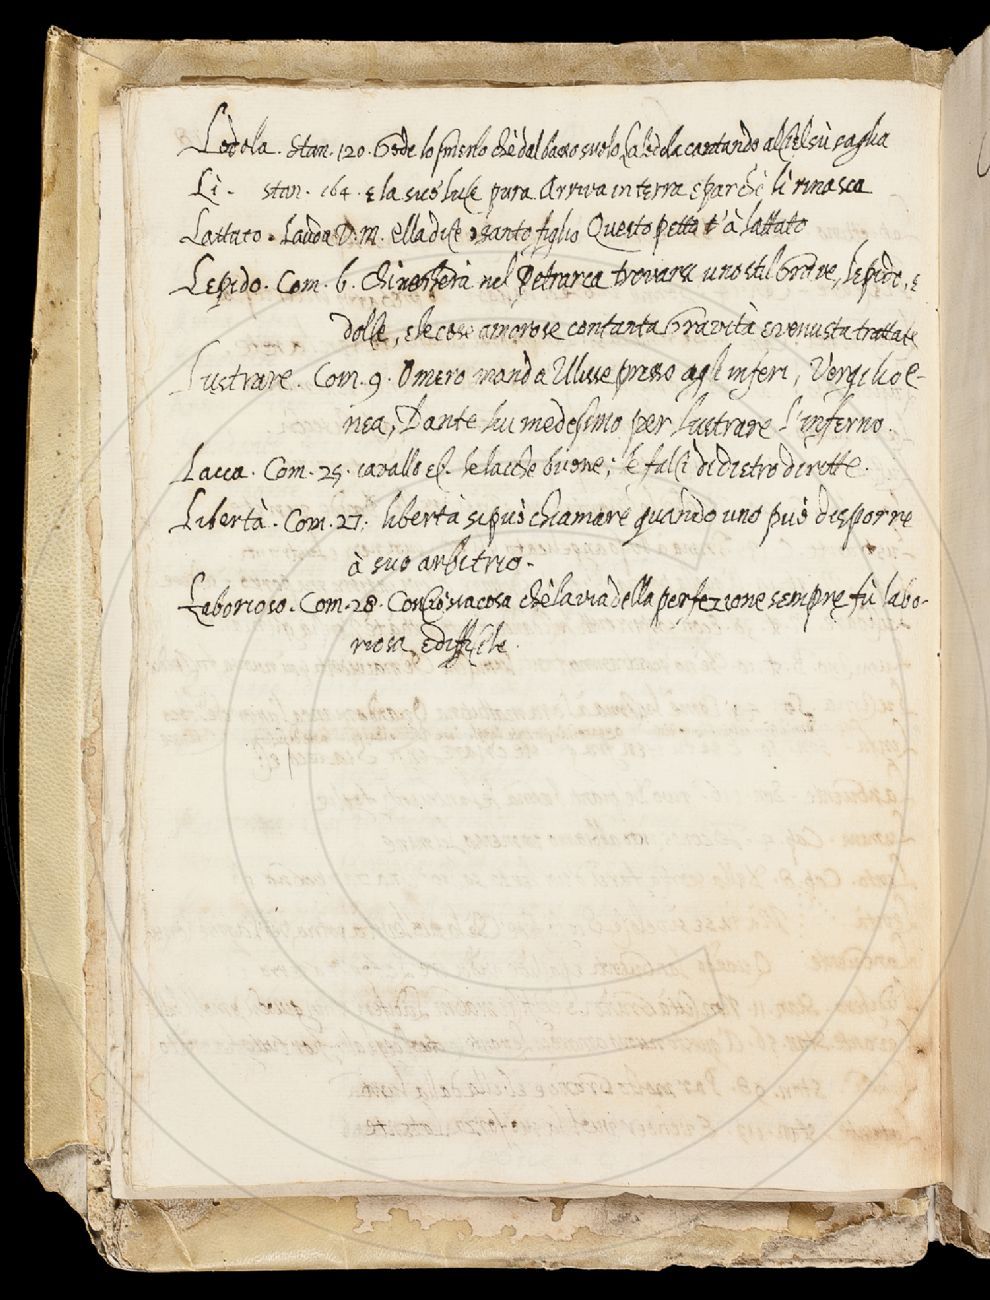 Lòdola. Stan. 120. Gode lo smerlo chè dal basso suolo La lòdola cantando al Ciel sù saglia
Lì. stan. 164. e la suo luce pura Arriva in terra e par chè lì rinasca
Lattato. Lauda D. M. ella dice o santo figlio Questo petto t'à lattato
Lepido. Com. 6. chi vorrà nel Petrarca trovarà uno stil Grave, lepido, e
dolce, e le cose amorose con tanta Gravità e venusta trattate
Lustrare. Com. 9. Omero manda Ulisse presso agl'inferi, Vergilio E-
nea, Dante lui medesimo per lustrare l'inferno.
Lacca. Com. 25. cavallo le lacche buone; le falci di dietro dirette.
Libertà. Com. 27. libertà si può chiamare quando uno può disporre
à suo arbitrio.
Laborioso. Com. 28. Conciosiacosa chè la via della perfezione sempre fù labo-
riosa, e difficile.